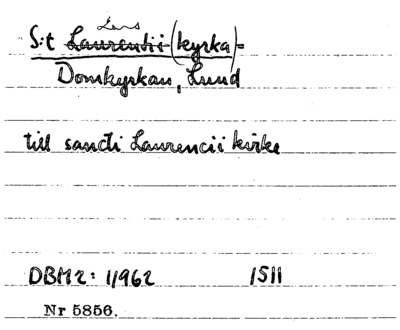 Lars
S:t Laurentii (kyrka)=
Domkyrkan, Lund
till sancti Laurencii kirke
DBM2: 1/962 1511
Nr 5856.